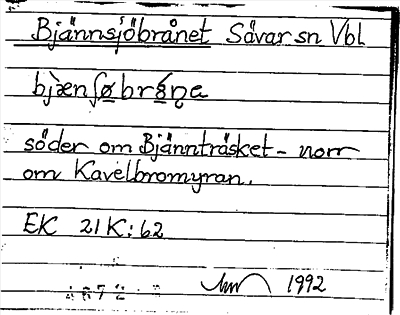 Bjännsjöbrånet Sävar sn Vbl
bjæ̀nʃø̠brǻ̠ne̥
söder om Bjännträsket - norr
om Kavelbromyran.
EK 21K:62
1992